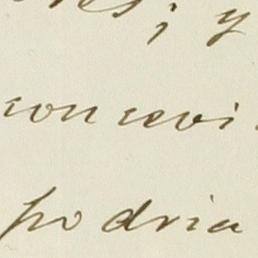 ; y
con cevi
podria